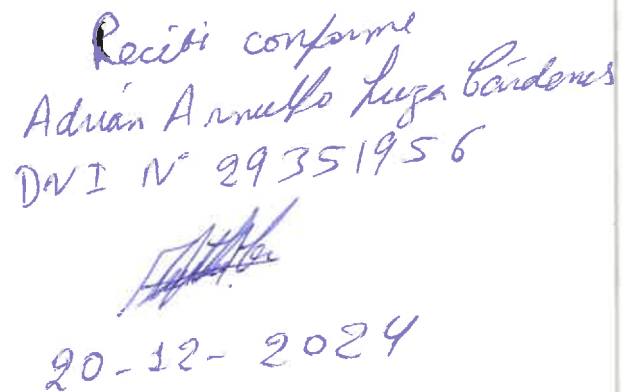 Recibi conforme
Adrián Arnulfo Luza Cárdenas
DNI N° 29351956
20-12-2024